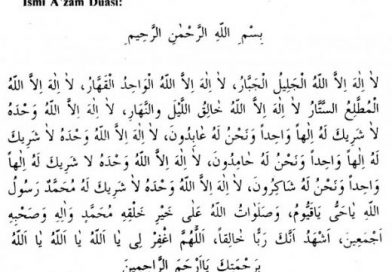 İsmi A'zam Duası:
بِسْمِ اللهِ الرَّحْمٰنِ الرَّحِيمِ
لاَ اِلٰهَ اِلاَّ اللهُ الْجَلِيلُ الْجَبَّارُ، لاَ اِلٰهَ اِلاَّ اللهُ الْوَاحِدُ الْقَهَّارُ، لاَ اِلٰهَ اِلاَّ اللهُ
الْمُطَّلِعُ السَّتَّارُ لاَ اِلٰهَ اِلاَّ اللهُ خَالِقُ اللَّيْلِ وَالنَّهَارِ، لاَ اِلٰهَ اِلاَّ اللهُ وَحْدَهُ
لاَ شَرِيكَ لَهُ اِلٰهاً وَاحِداً وَنَحْنُ لَهُ عَابِدُونَ، لاَ اِلٰهَ اِلاَّ اللهُ وَحْدَهُ لاَ شَرِيكَ
لَهُ اِلٰهاً وَاحِداً وَنَحْنُ لَهُ حَامِدُونَ، لاَ اِلٰهَ اِلاَّ اللهُ وَحْدَهُ لاَ شَرِيكَ لَهُ اِلٰهاً
وَاحِداً وَنَحْنُ لَهُ شَاكِرُونَ، لاَ اِلٰهَ اِلاَّ اللهُ وَحْدَهُ لاَ شَرِيكَ لَهُ مُحَمَّدٌ رَسُولُ
اللهِ يَاحَىُّ يَاقَيُّومُ، وَصَلَوَاتُ اللهِ عَلٰى خَيْرِ خَلْقِهِ مُحَمَّدٍ وَاٰلِهِ وَصَحْبِهِ
اَجْمَعِينَ، اَشْهَدُ اَنَّكَ رَبًّا خَالِقاً، اَللّٰهُمَّ اغْفِرْ لِى يَا اَللهُ يَا اَللهُ يَا اَللهُ
بِرَحْمَتِكَ يَااَرْحَمَ الرَّاحِمِينَ